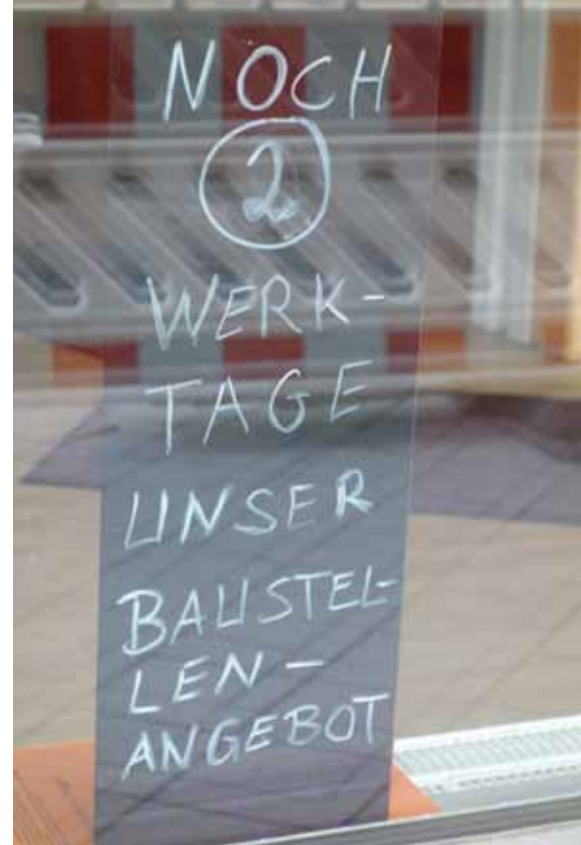 NOCH
2
WERK-
TAGE
UNSER
BAUSTEL-
LEN-
ANGEBOT